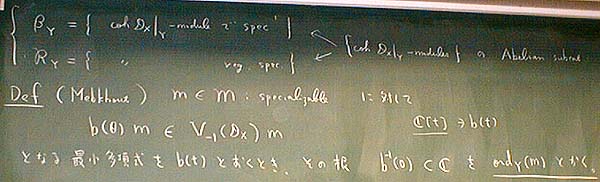 B_Y = { coh D_X|_Y-module で spec' }
R_Y = { 〃 reg. spec. } {coh D_X|_Y-modules} の Abelian subcat.
Def (Mebkhout) m ∈ M : specializable に対して
b(θ) m ∈ V_{-1}(D_X) m ℂ[t] ∋ b(t)
となる 最小多項式 を b(t) とおくとき、その根 b^{-1}(0) ⊂ ℂ を ord_Y(m) とかく。